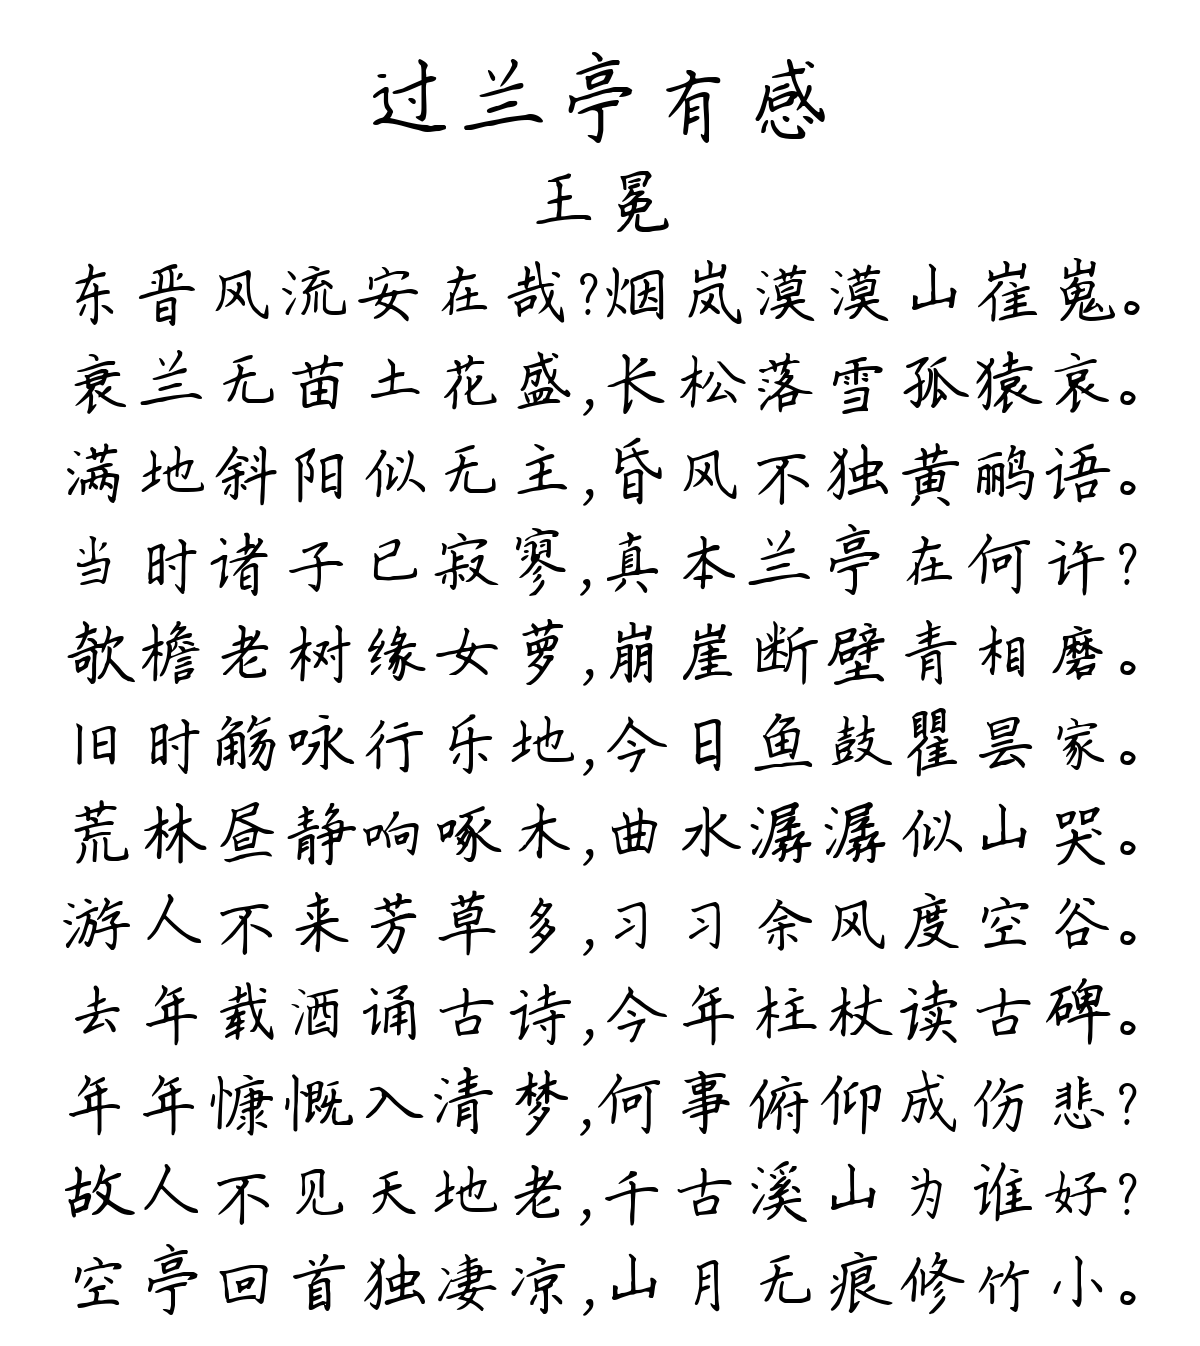 过兰亭有感
王冕
东晋风流安在哉?烟岚漠漠山崔嵬。
衰兰无苗土花盛,长松落雪孤猿哀。
满地斜阳似无主,昏风不独黄鹂语。
当时诸子已寂寥,真本兰亭在何许?
欹檐老树缘女萝,崩崖断壁青相磨。
旧时觞咏行乐地,今日鱼鼓瞿昙家。
荒林昼静响啄木,曲水潺潺似山哭。
游人不来芳草多,习习余风度空谷。
去年载酒诵古诗,今年柱杖读古碑。
年年慷慨入清梦,何事俯仰成伤悲?
故人不见天地老,千古溪山为谁好?
空亭回首独凄凉,山月无痕修竹小。